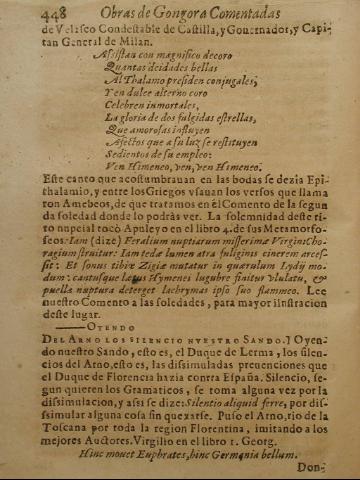 448 Obras de Gongora Comentadas
de Velasco Condestable de Castilla, y Gouernador, y Capi-
tan General de Milan.
Assistan con magnifico decoro
Quantas deidades bellas
Al Thalamo presiden conjugales,
Y en dulce alterno coro
Celebren inmortales,
La gloria de dos fulgidas estrellas,
Que amorosas influyen
Afectos que a su luz se restituyen
Sedientos de su empleo:
Ven Himeneo, ven, ven Himeneo.
Este canto que acostumbrauan en las bodas se dezia Epi-
thalamio, y entre los Griegos vsauan los versos que llama
ron Amebeos, de que tratamos en el Comento de la segun
da soledad donde lo podràs ver. La solemnidad deste ri-
to nupcial tocò Apuleyo en el libro 4. de sus Metamorfo-
seos: Iam (dize) Feralium nuptiarum misserimæ Virgini Cho-
ragium struitur: Iam tedæ lumen atra fuliginis cinerem arces-
sit: Et sonus tibiæ Zigiæ mutatur in quærulum Lydij mo-
dum: cantusque lætus Hymenei lugubre finitur vlulatu, &
puella nuptura deterget lachrymas ipso suo flammeo. Lee
nuestro Comento a las soledades, para mayor ilustracion
deste lugar.
OYENDO
DEL ARNO LOS SILENCIO NVESTRO SANDO.] Oyen-
do nuestro Sando, esto es, el Duque de Lerma, los silen-
cios del Arno, esto es, las dissimuladas preuenciones que
el Duque de Florencia hazia contra España. Silencio, se-
gun quieren los Gramaticos, se toma alguna vez por la
dissimulacion, y assi se dize: Silentio aliquid ferre, por dis-
simular alguna cosa sin quexarse. Puso el Arno, rio de la
Toscana por toda la region Florentina, imitando a los
mejores Auctores. Virgilio en el libro 1. Georg.
Hinc mouet Euphrates, hinc Germania bellum.
Don-